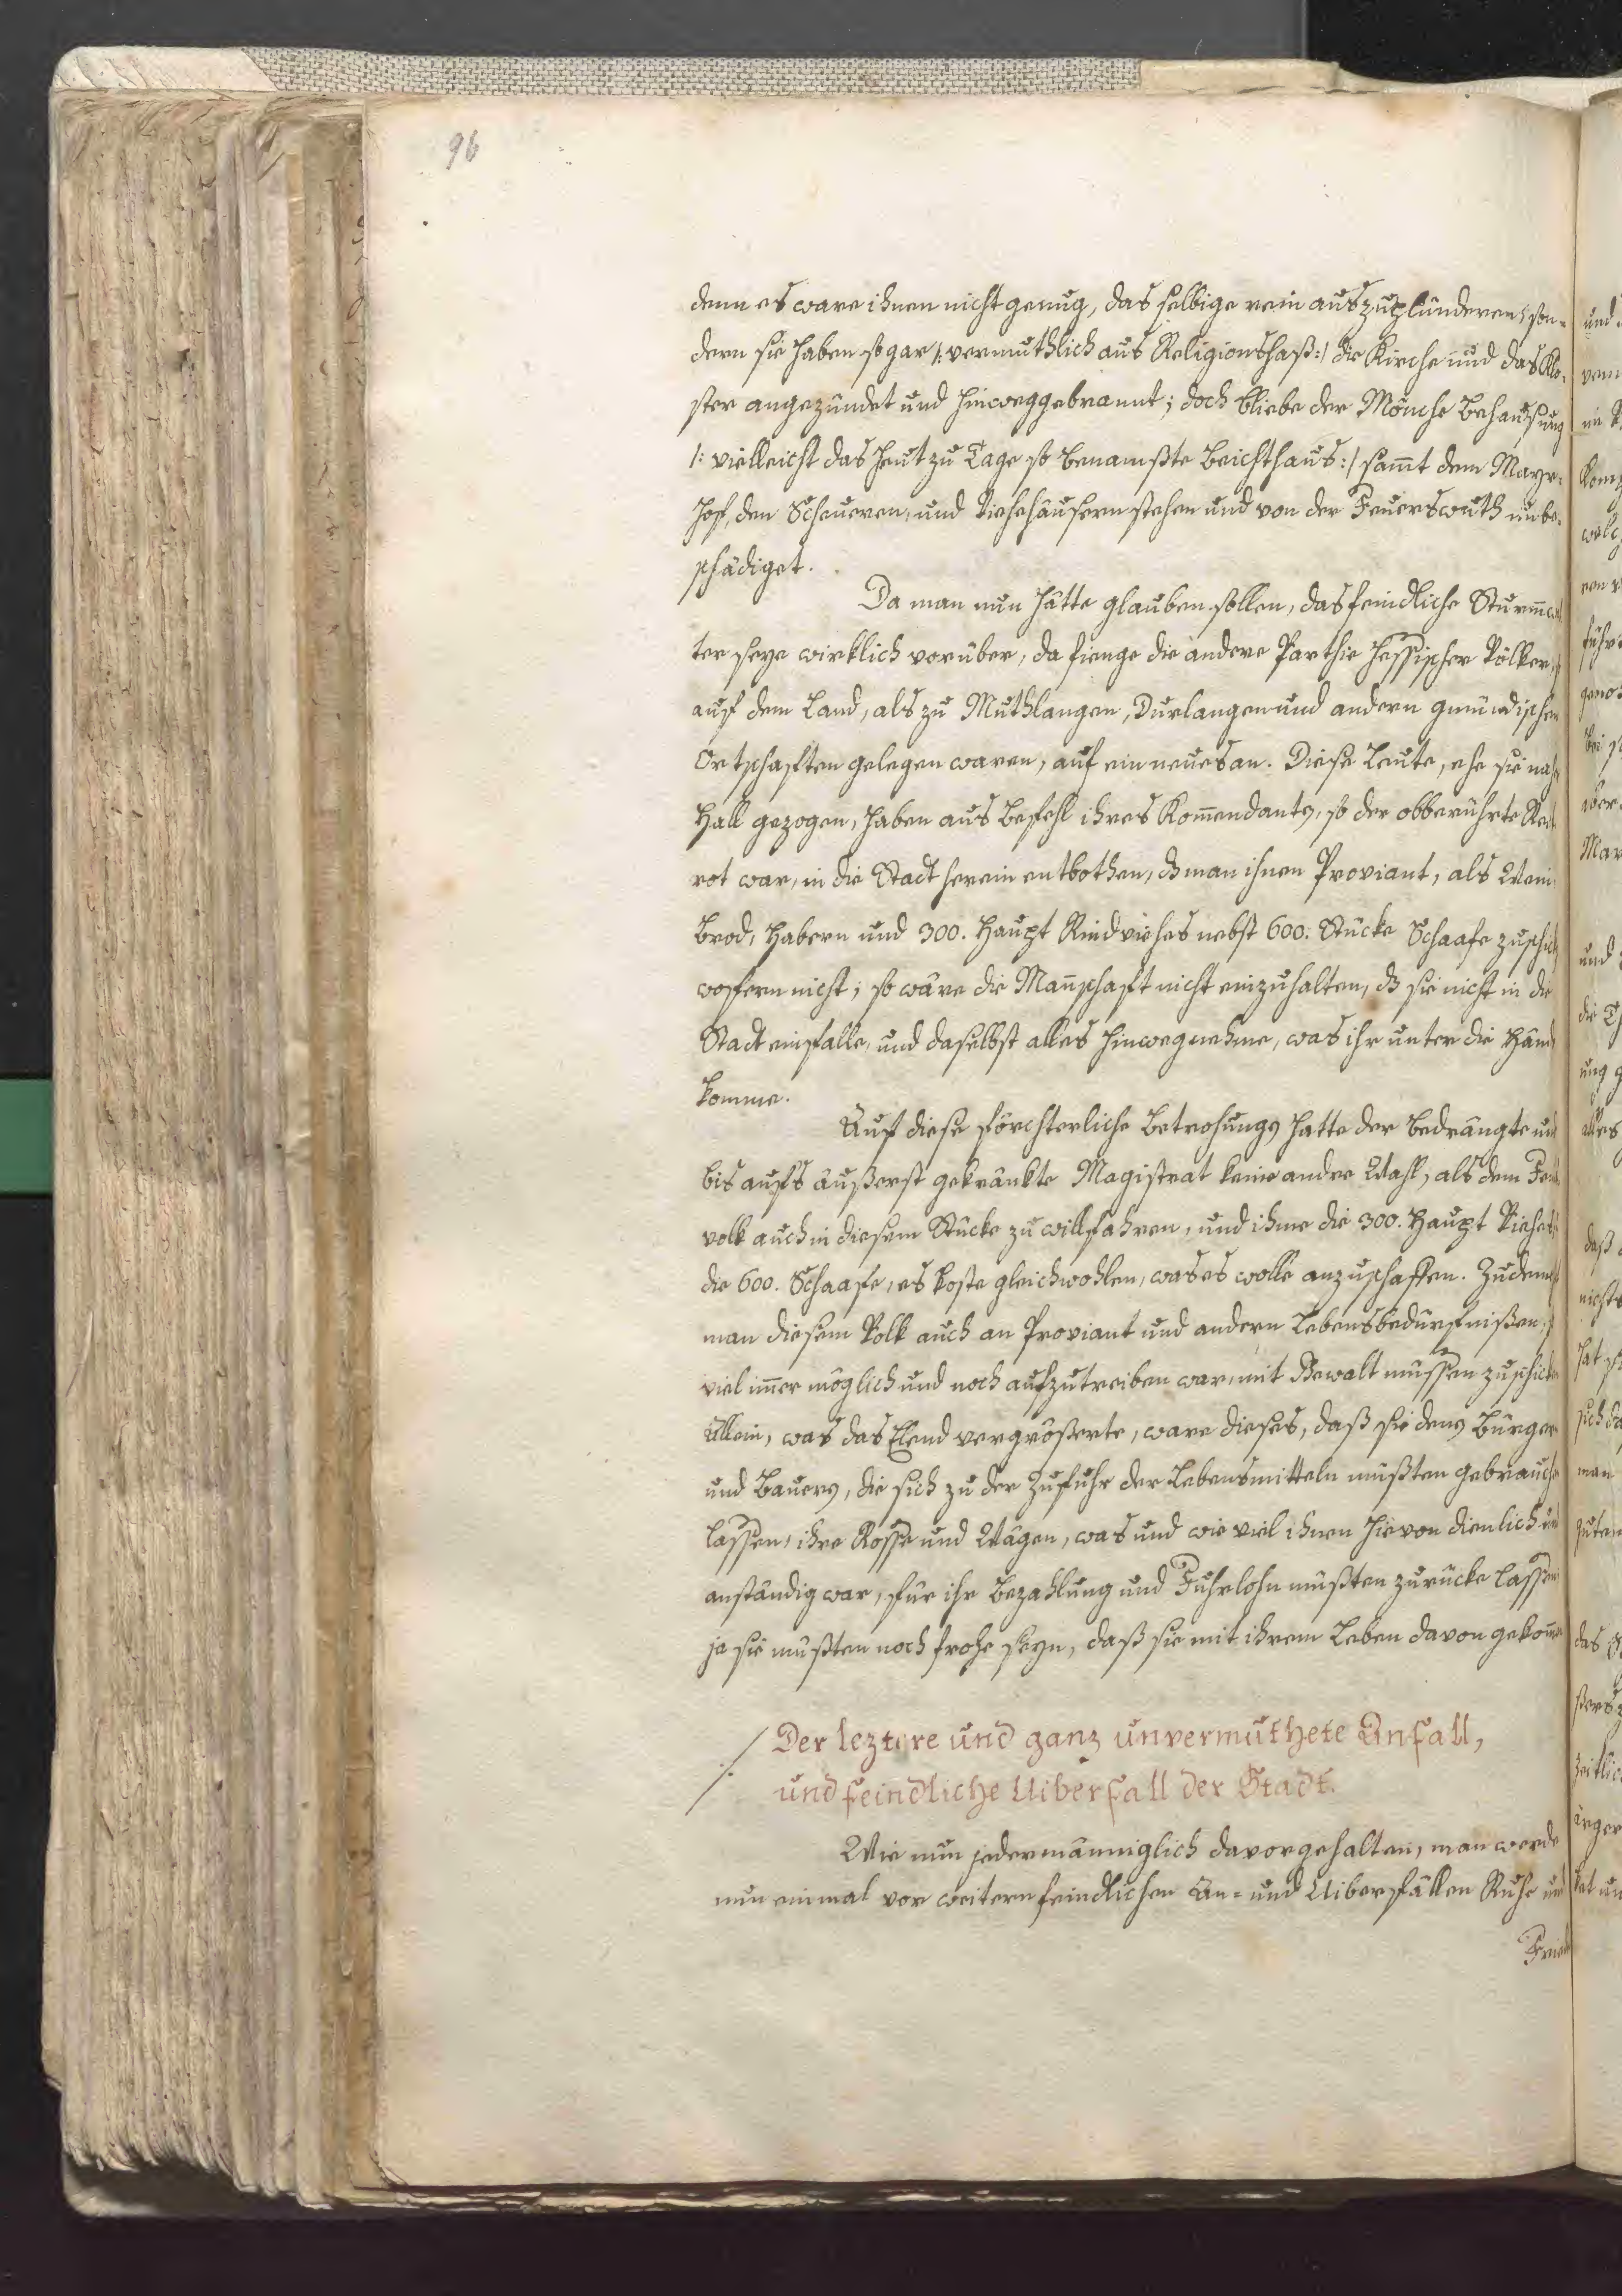 96
denn es ware ihnen nicht genug, das selbige rein auszuplünderen, son-
dern sie haben sogar /: vermuthlich aus Religionshaß :/ die Kirche und das Klo-
ster angezündet und hinweggebrannt; doch bliebe der Mönche Behausung
/: vielleicht das heut zu Tage so benamßte Beichthaus :/ sam̄t dem Mayr-
hof, den Scheueren, und Viehehäusern stehen und von der Feuerswuth unbe-
schädiget.
Da man nun hätte glauben sollen, das feindliche Sturm̄
ter seye wirklich vorüber, da fienge die andere Parthie hessischer Völker,
auf dem Land, als zu Muthlangen, Durlangen und andern gmündischen
Ortschaften gelegen waren, auf ein neues an. Diese Leute, ehe sie nach
Hall gezogen, haben aus Befehl ihres Kom̄endants, so der obberührte
rot war, in die Stadt herein entbothen, dß man ihnen Proviant, als Wein
Brod, Habern und 300. Haupt Rindviehes nebst 600. Stücke Schaafe
wofern nicht; so wäre die Man̄schaft nicht einzuhalten, dß sie nicht in die
Stadt einfalle, und daselbst alles hinwegnehme, was ihr unter die Händ
komme.
Auf diese förchterliche Betrohungs hatte der bedrängte und
bis aufs äußerst gekränkte Magistrat keine andre Wahl, als dem
volk auch in diesem Stücke zu willfahren, und ihme die 300. Haupt Viehes
die 600. Schaafe, es koste gleichwohlen, was es wolle anzuschaffen. Zudem
man diesem Volk auch an Proviant und andern Lebensbedürfnißen,
viel im̄er möglich und noch aufzutreiben war, mit Gewalt müssen zuschicken
Allein, was das Elend vergrößerte, ware dieses, daß sie den Bürger
und Bauern, die sich zu der Zufuhr der Lebensmitteln mußten gebrauchen
lassen, ihre Rosse und Wägen, was und wie viel ihnen hievon dienlich und
anständig war, für ihr Bezahlung und Fuhrlohn mußten zurücke lassen
ja sie mußten noch frohe seyn, daß sie mit ihrem Leben davon gekom̄en
Der leztere und ganz unvermuthete Anfall,
und feindliche Uiberfall der Stadt.
Wie nun jedermänniglich davorgehalten, man werde
nun einmal vor weitern feindlichen An- und Uiberfällen Ruhe und
Fried